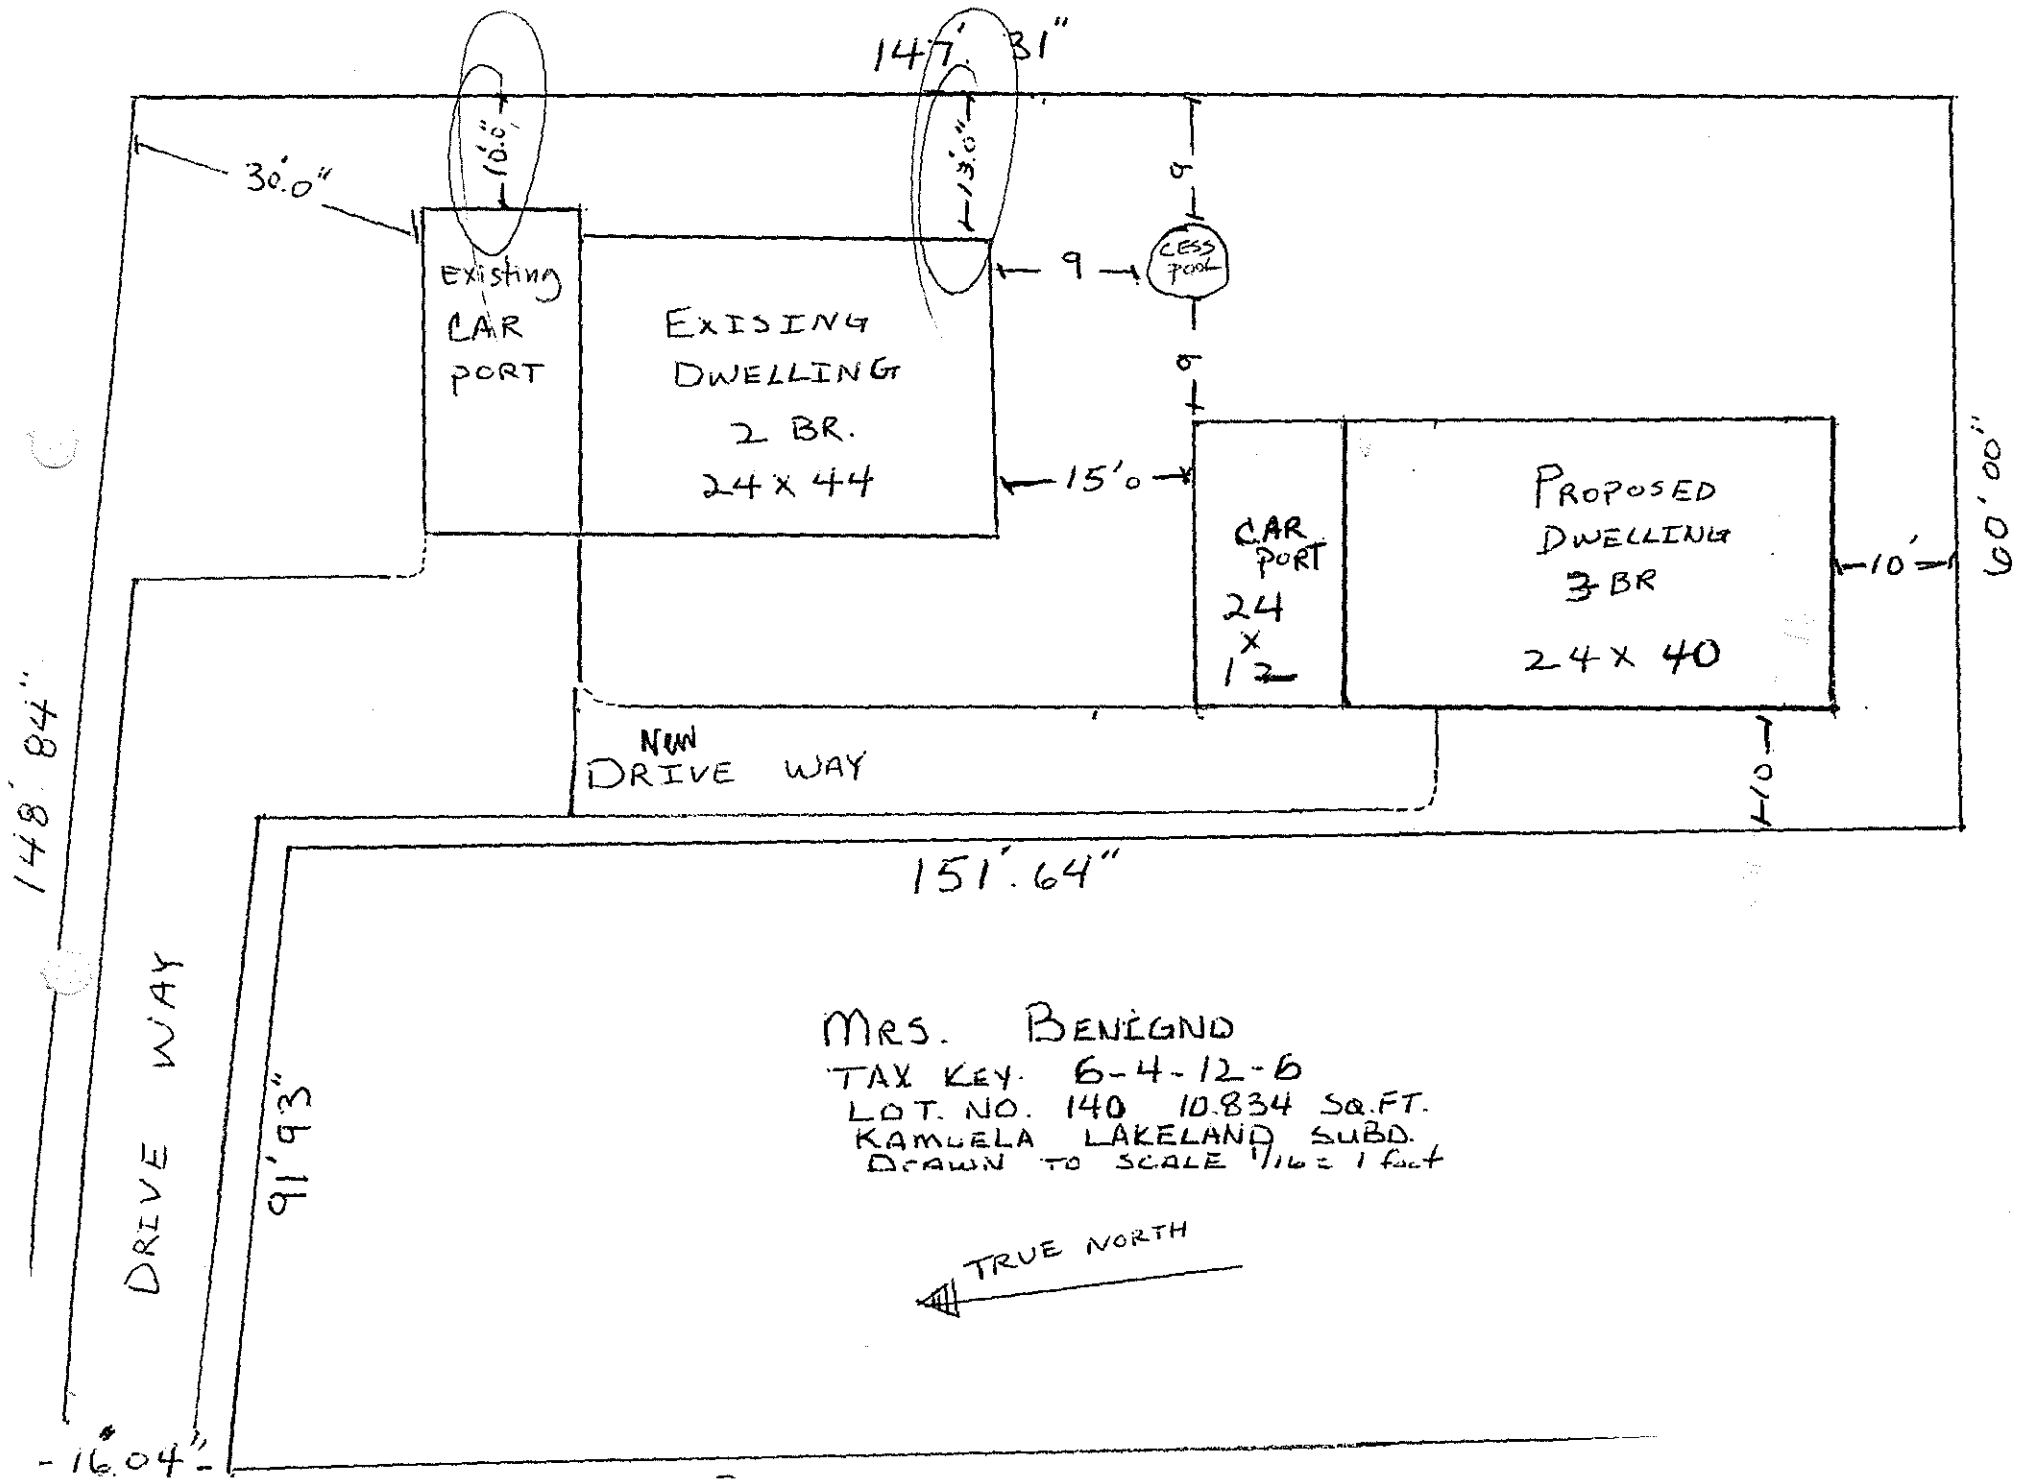 147'. 31"
10'.0"
13'.0"
30'.0"
9
CESS
POOL
9
Existing
CAR
PORT
EXISING
DWELLING
2 BR.
24 x 44
9
15'0
CAR
PORT
24
x
12
PROPOSED
DWELLING
3 BR
24 x 40
10'
60'00"
148'.84"
NEW
DRIVE WAY
10
151'.64"
DRIVE WAY
91'93"
MRS. BENIGNO
TAX KEY. 6-4-12-6
LOT. NO. 140 10.834 SQ.FT.
KAMUELA LAKELAND SUBD.
DRAWN TO SCALE 1/16 = 1 foot
TRUE NORTH
-16'.04"-